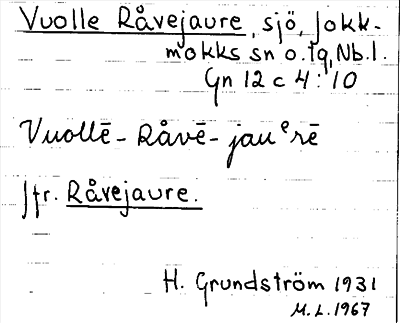 Vuolle Råvejaure, sjö, Jokk-
mokks sn o. tg, Nb. l.
Gn 12 c 4:10
Vuollē-Råvē-jauᵉrē
Jfr. Råvejaure.
H. Grundström 1931
M.L. 1967